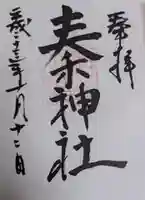 奉拝
秦神社
年十月十二日